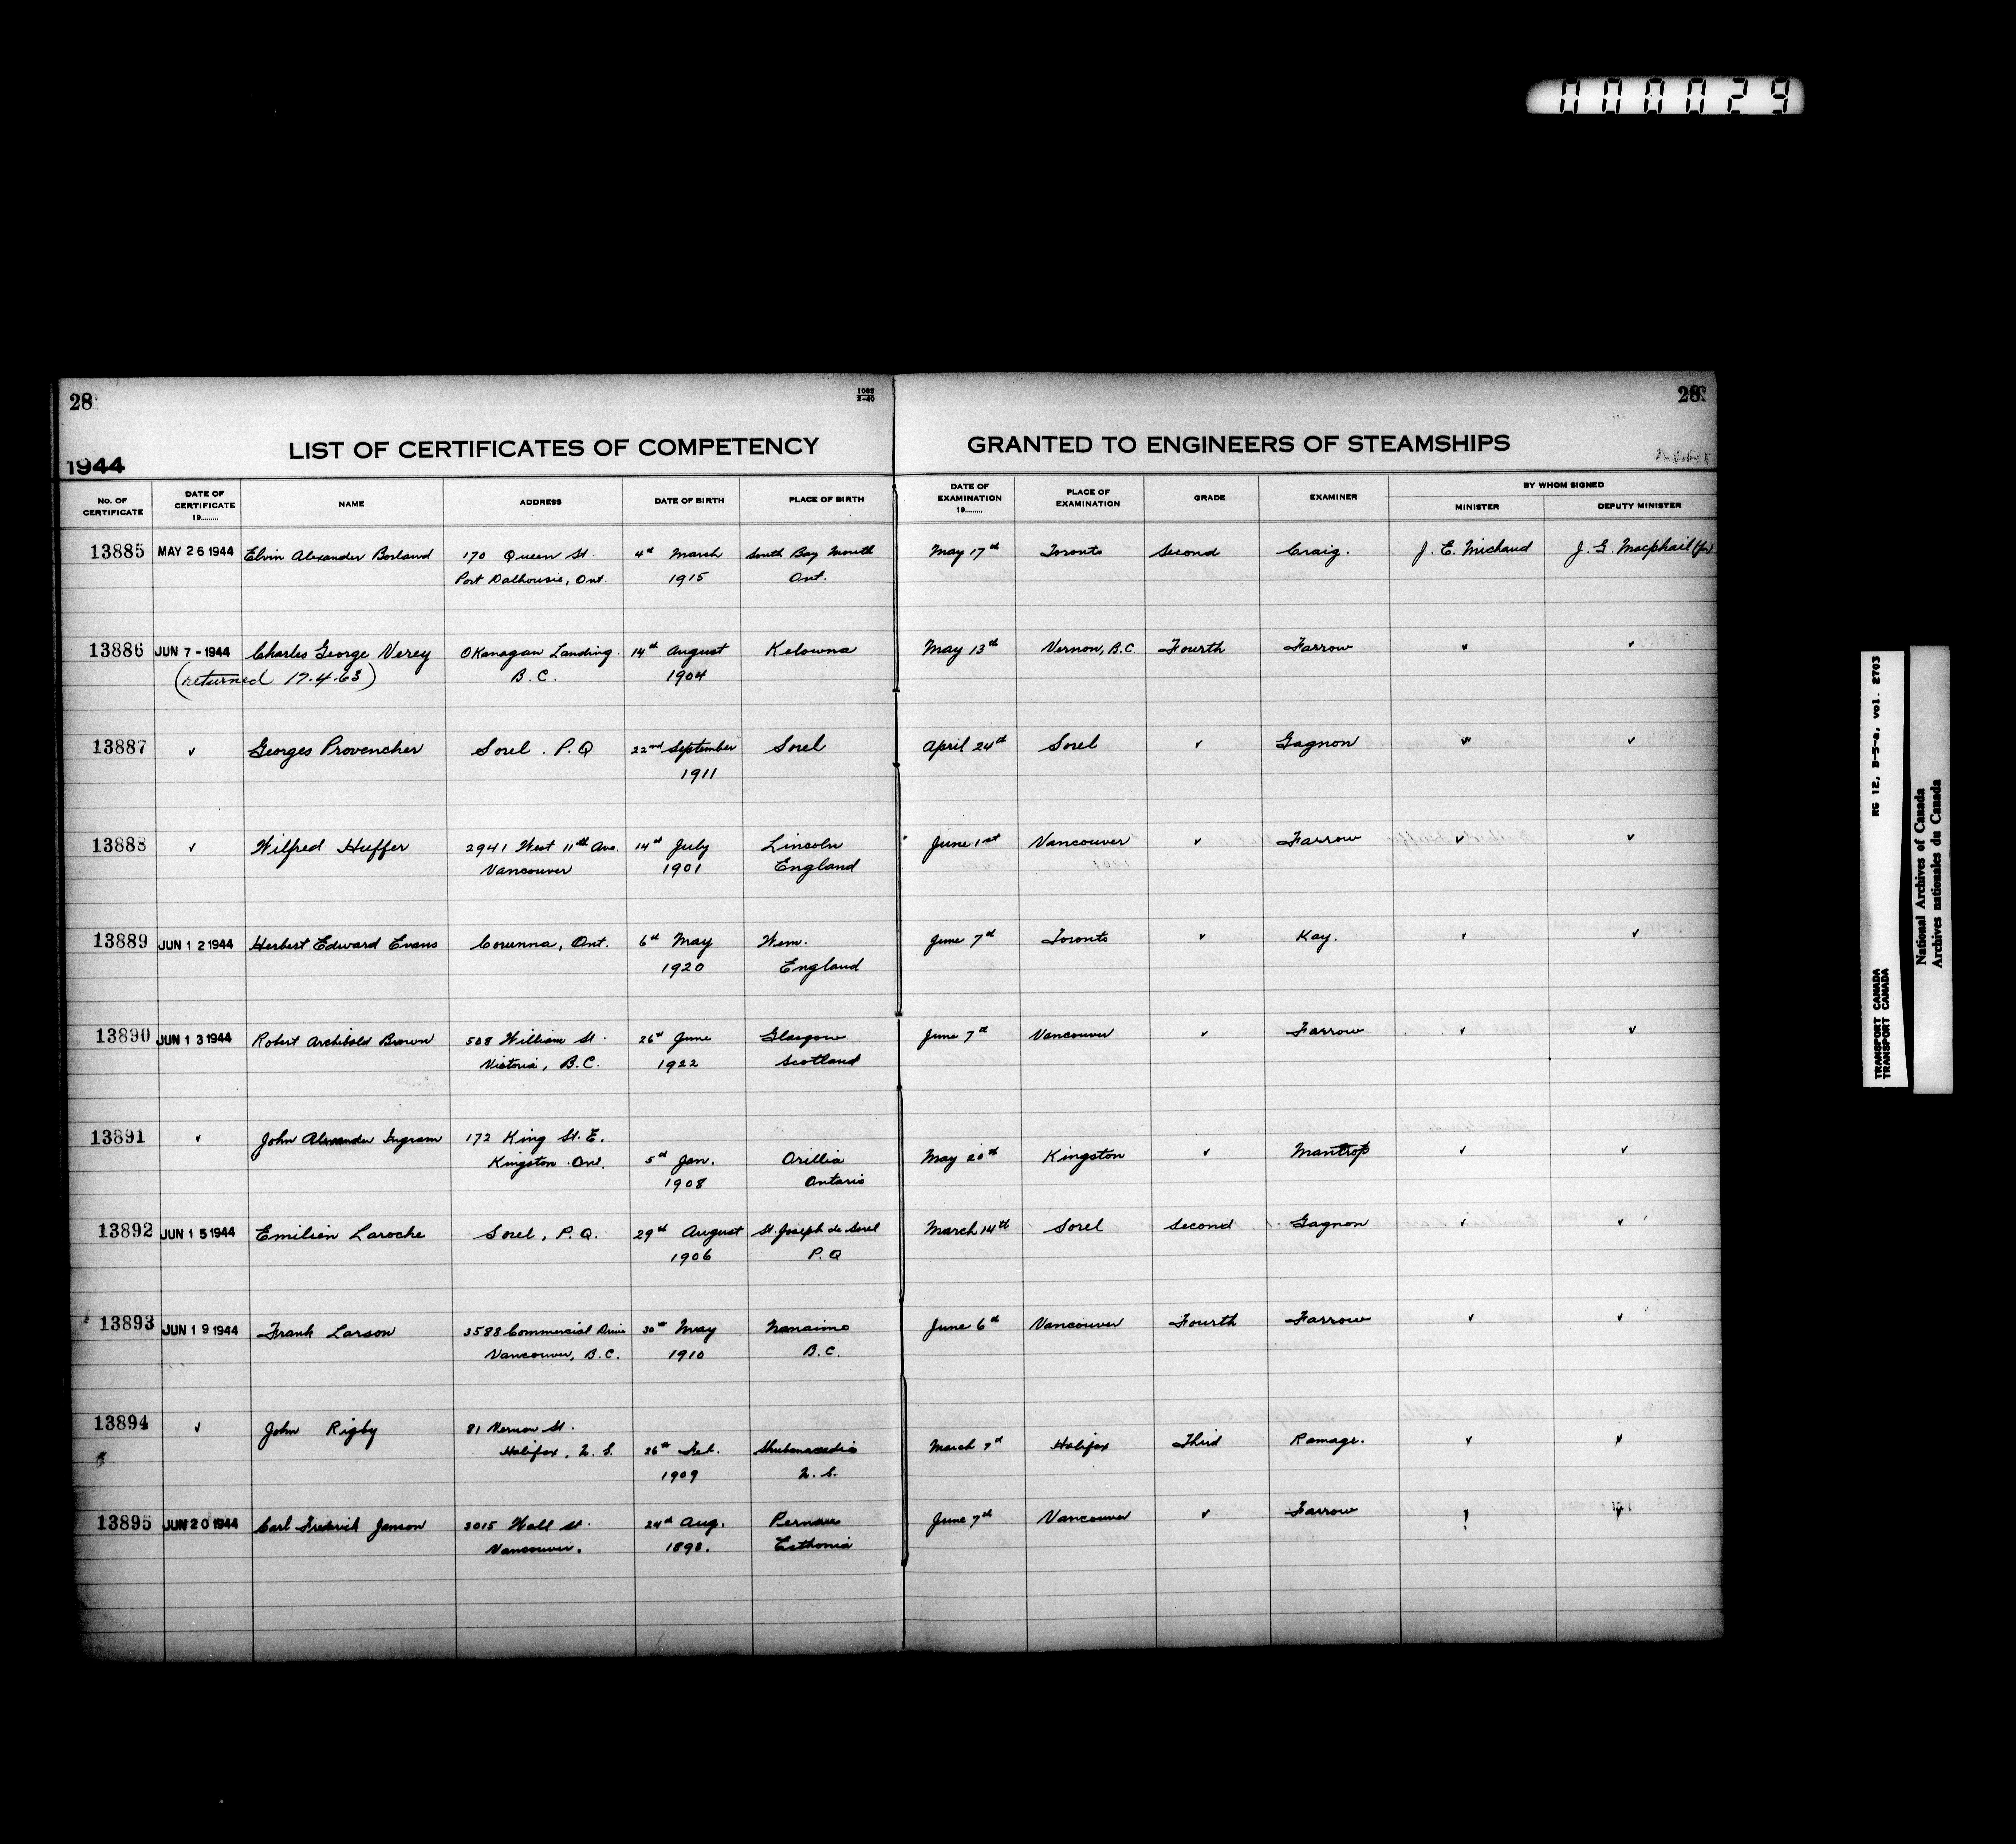 000029
28
1085
X-40
28
1944
LIST OF CERTIFICATES OF COMPETENCY GRANTED TO ENGINEERS OF STEAMSHIPS
No. OF CERTIFICATE DATE OF CERTIFICATE 19........ NAME ADDRESS DATE OF BIRTH PLACE OF BIRTH DATE OF EXAMINATION 19........ PLACE OF EXAMINATION GRADE EXAMINER BY WHOM SIGNED
MINISTER DEPUTY MINISTER
13885 MAY 26 1944 Elvin Alexander Borland 170 Queen St. 4th March South Bay Mouth May 17th Toronto Second Craig. J. E. Michaud J. G. Macphail (for)
Port Dalhousie, Ont. 1915 Ont.
13886 JUN 7 - 1944 Charles George Verey Okanagan Landing. 14th August Kelowna May 13th Vernon, B.C Fourth Farrow " ✓
(returned 17.4.63) B.C. 1904
13887 ✓ Georges Provencher Sorel. P.Q 22nd September Sorel April 24th Sorel ✓ Gagnon ✓ ✓
1911
13888 ✓ Wilfred Huffer 2941 West 11th Ave. 14th July Lincoln June 1st Vancouver ✓ Farrow ✓ ✓
Vancouver 1901 England
13889 JUN 12 1944 Herbert Edward Evans Corunna, Ont. 6th May Wem. June 7th Toronto ✓ Kay. ✓ ✓
1920 England
13890 JUN 13 1944 Robert Archibald Brown 508 William St. 26th June Glasgow June 7th Vancouver ✓ Farrow ✓ ✓
Victoria, B.C. 1922 Scotland
13891 ✓ John Alexander Ingram 172 King St. E.
Kingston Ont. 5th Jan. Orillia May 20th Kingston ✓ Mantrop ✓ ✓
1908 Ontario
13892 JUN 15 1944 Emilien Laroche Sorel, P.Q. 29th August St. Joseph de Sorel March 14th Sorel Second Gagnon ✓ ✓
1906 P.Q
13893 JUN 19 1944 Frank Larson 3588 Commercial Drive 30th May Nanaimo June 6th Vancouver Fourth Farrow ✓ ✓
Vancouver, B.C. 1910 B.C.
13894 ✓ John Rigby 81 Vernon St.
Halifax, N.S. 26th Feb. Shubenacadie March 7th Halifax Third Ramage. ✓ ✓
1909 N.S.
13895 JUN 20 1944 Carl Frederick Janson 3015 Wall St. 24th Aug. Pernau June 7th Vancouver ✓ Farrow ✓ ✓
Vancouver. 1898. Esthonia
RG 12, B-5-a, vol. 2703
TRANSPORT CANADA
TRANSPORT CANADA
National Archives of Canada
Archives nationales du Canada